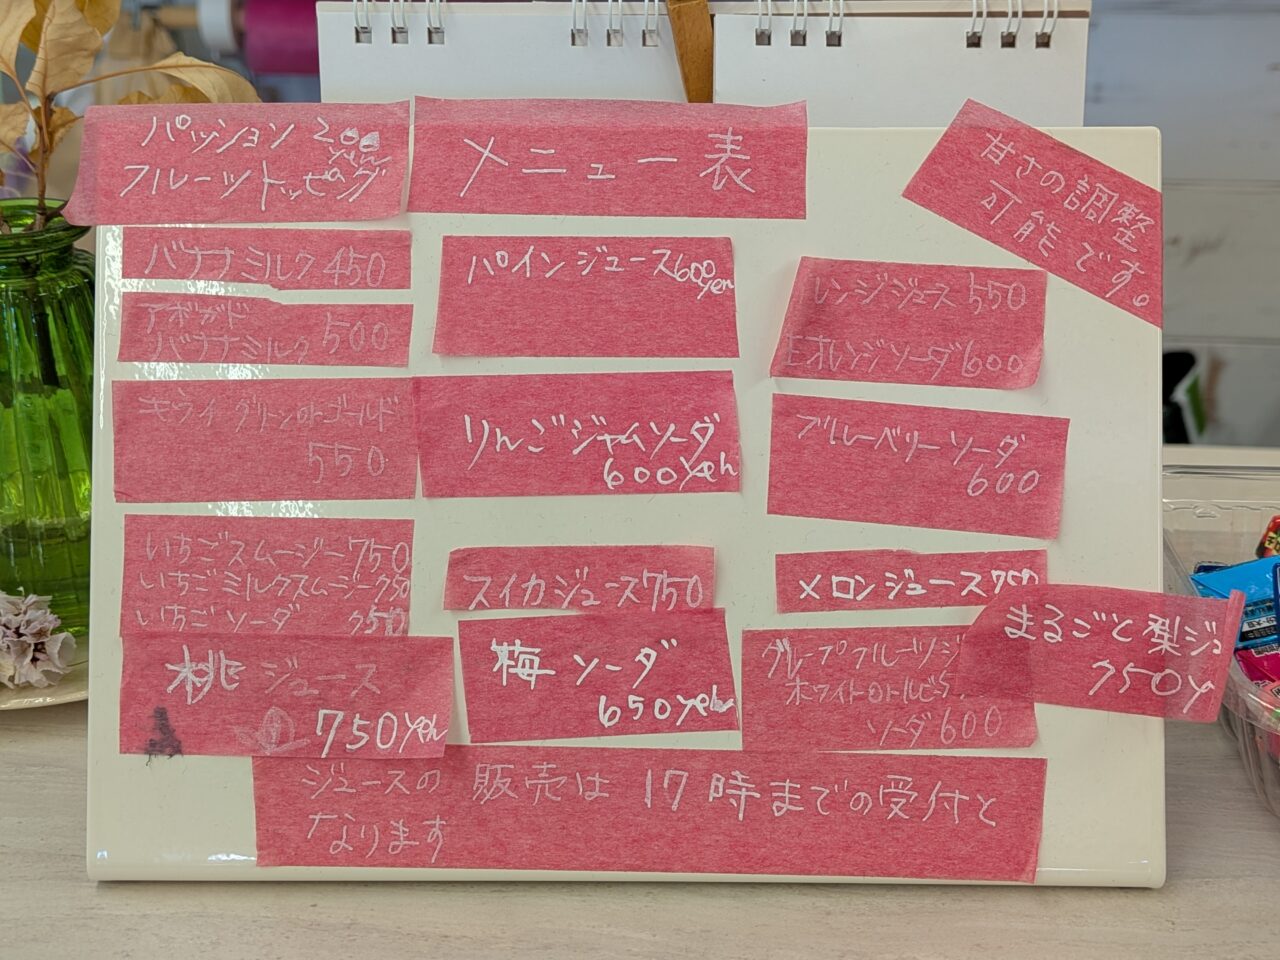 パッション 200
yen
フルーツトッピング
メニュー表
甘さの調整
可能です。
バナナミルク 450
アボガド
バナナミルク 500
パインジュース600
yen
レンジジュース 550
オレンジソーダ600
キウイ グリーンorゴールド
550
りんごジャムソーダ
600yen
ブルーベリーソーダ
600
いちごスムージー750
いちごミルクスムージー750
いちごソーダ 750
スイカジュース750
メロンジュース750
桃ジュース
750yen
梅ソーダ
650yen
グレープフルーツジ
ホワイトorルビー
ソーダ600
まるごと梨ジュ
750y
ジュースの販売は17時までの受付と
なります